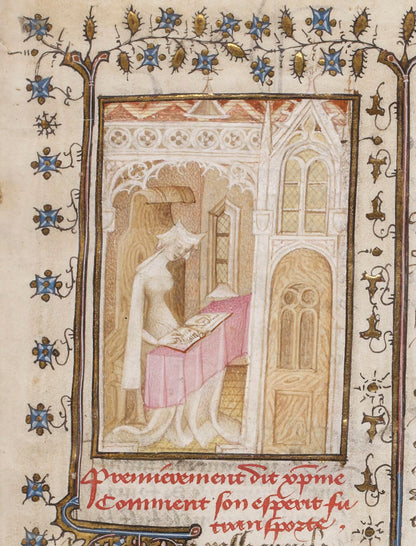 Premierement dit xp̃ine
Comment son esperit fu
transporte.